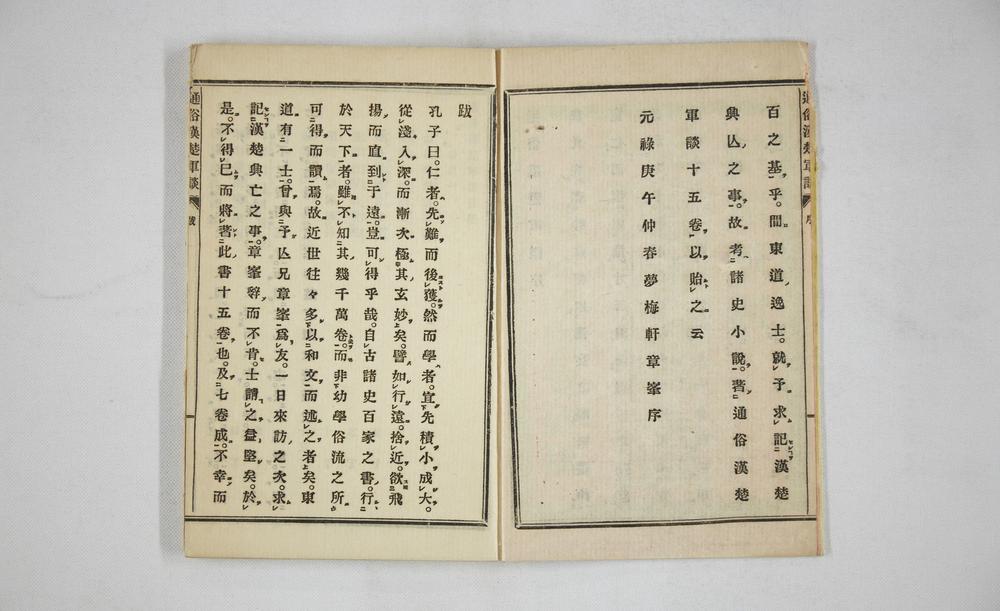 百之基乎。間東道逸士。就予求記漢楚
興亾之事。故考諸史小說。著通俗漢楚
軍談十五卷以貽之云
元祿庚午仲春夢梅軒章峯序
通俗漢楚軍談 跋
跋
孔子曰。仁者。先難而後獲。然而學者。宜先積小成大。
從淺入深。而漸次極其玄妙矣。譬如行遠。捨近。欲飛
揚而直到于遠。豈可得乎哉。自古諸史百家之書。行
於天下者。雖不知其幾千萬卷。而非幼學俗流之所
可得而讀焉。故近世往々多以和文而述之者矣。東
道有一士。曾與予亾兄章峯爲友。一日來訪之次。求
記漢楚興亡之事。章峯辭而不肯。士請之益堅矣。於
是。不得已而將著此書十五卷也。及七卷成。不幸而